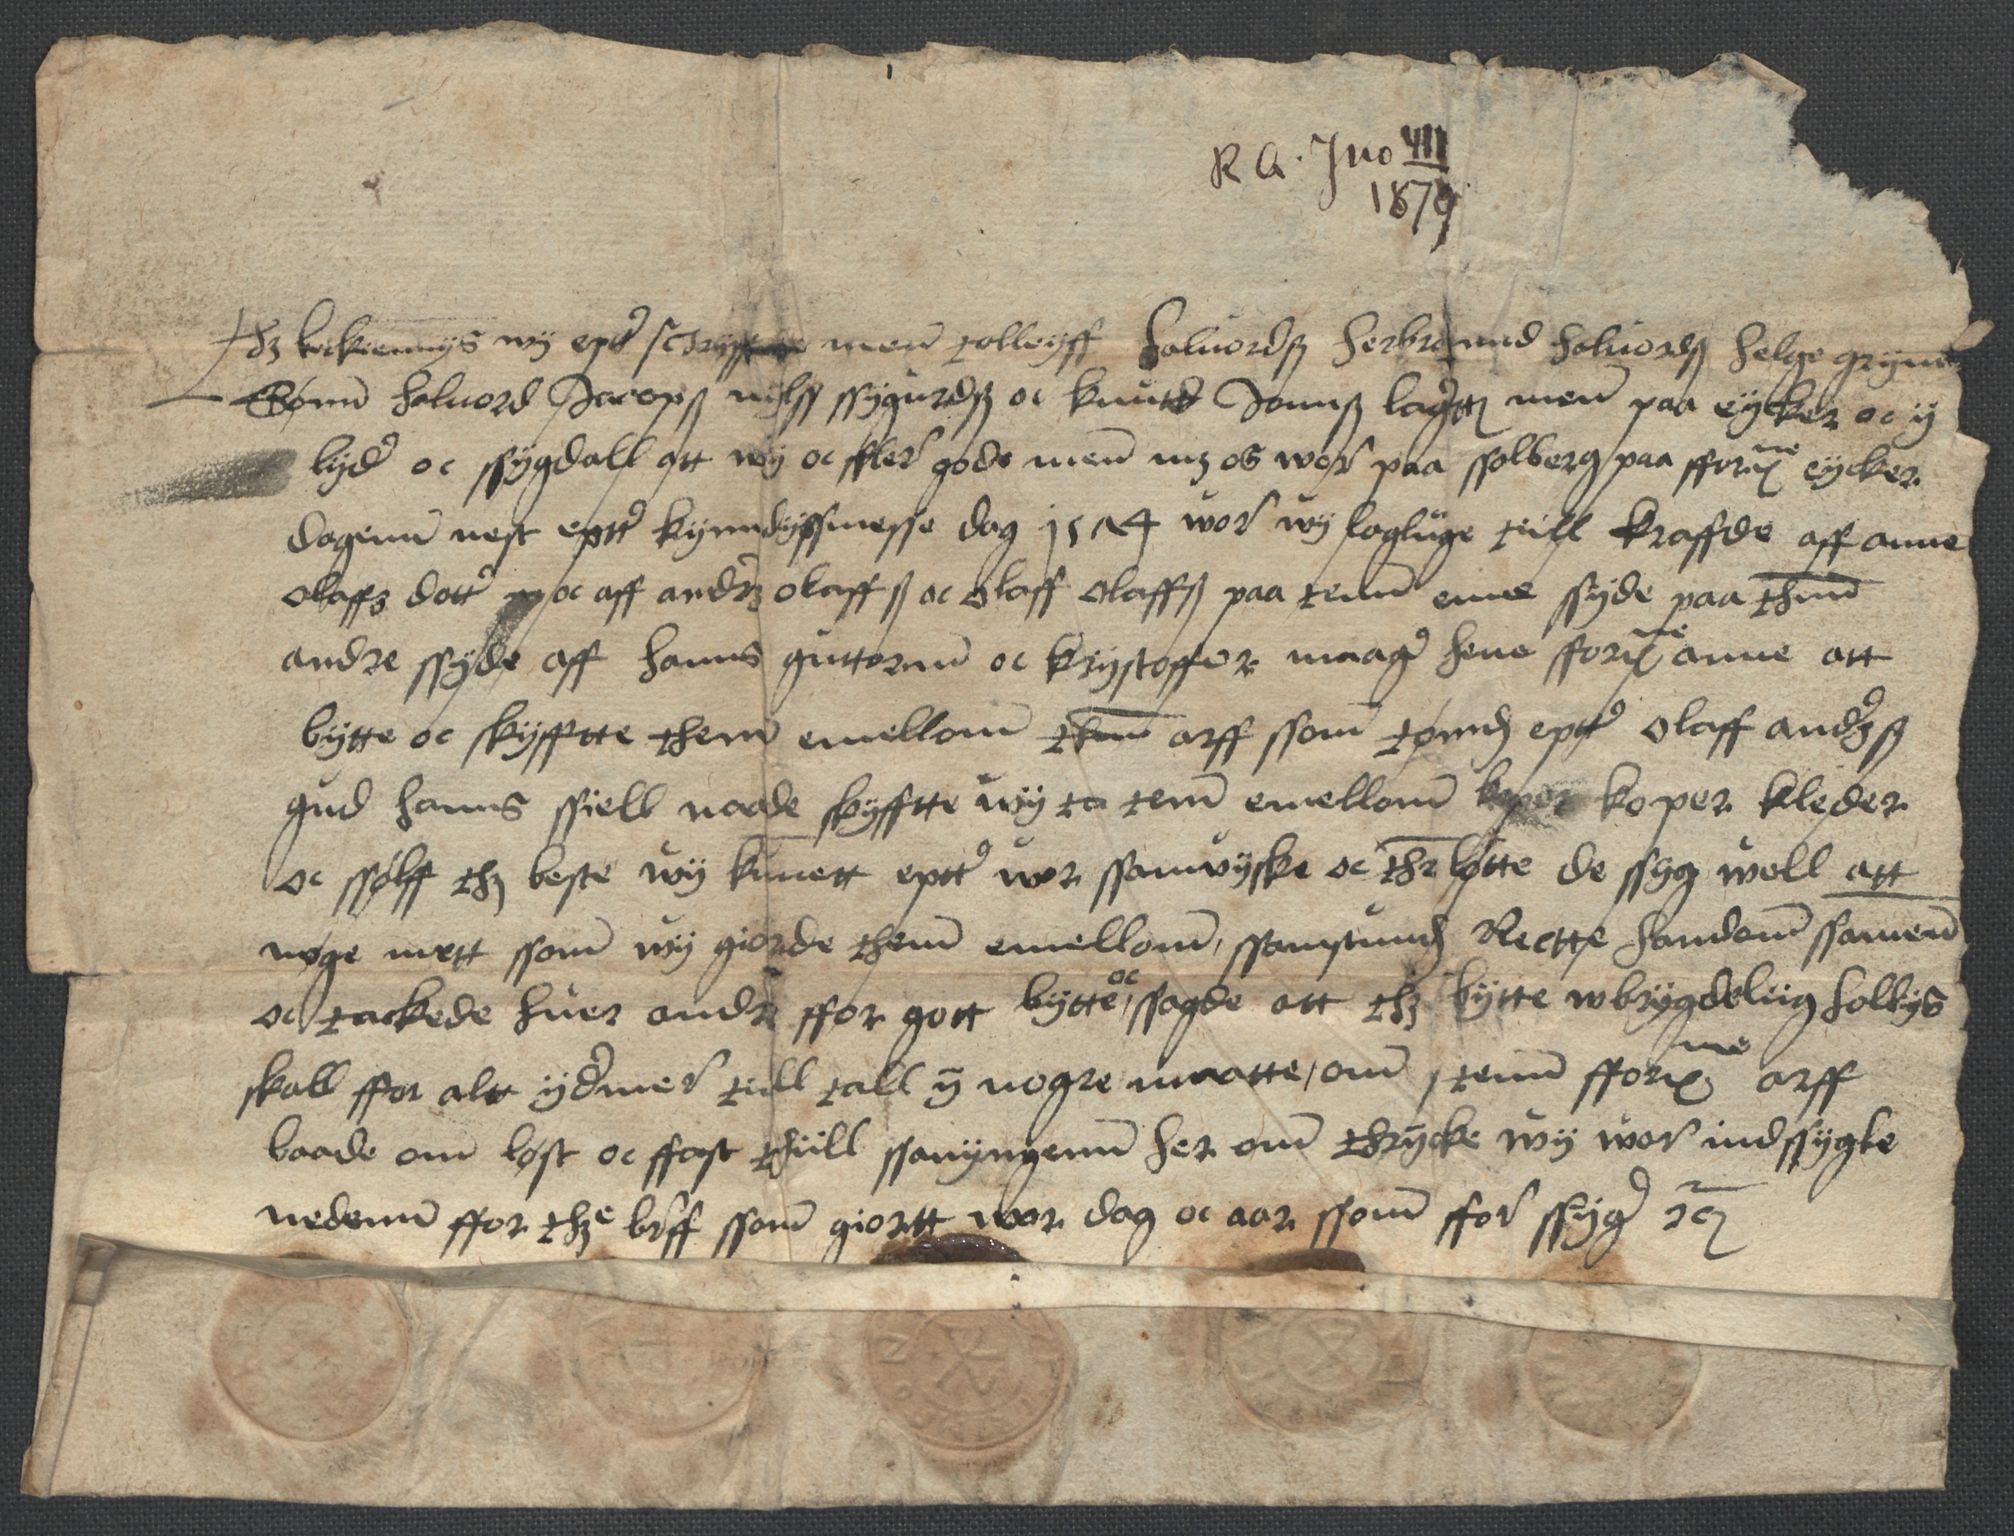 R A. Jno VII
1879
Thz bekiennys wy epttr schryffne men tolleyff Halvordß Herbrannd Halvordß Helge grym
Sønn Halvord Jacopß nylss ssygurdß oc knutd Jonnß lagrtt men paa eycker oc y
lyder oc ssygdall att wy oc fler gode men mz os wor paa ssolberg paa fforne eycker
dagenn nest epttr kynndyssmesse dag 1574 wor wy loglige till kraffde aff anne
olaffz dottr oc aff andrz olaffß oc olaff olaffß paa tenn enne ssyde paa thnn
andre ssyde aff hanns guttormm oc krystoffer maagr hene fforne anne att
bytte oc skyfftte them emellom thnn arff ssom tømdz epttr olaff andrzß
gud hanns ssiell naade skyfftte wy ta tem emellom koper kleder
oc ssølff thz beste wy kunett epttr wor ssamvyske oc thr lotte de ssyg well att
nøge mett ssom wy giorde them emellom, ssamstundz Rectte handom ssamen
oc tackede huer andr ffor gott bytte oc ssagde att thz bytte wbrygdeliig hollys
skall ffor alt yder mer till tall y nogre maatte, om tenn fforne arff
baade om løst oc ffast thiill ssanyngenn her om thrycke wy wor indssygle
nedenn ffor thze breff ssom giortt wor dag oc aar ssom ffor ssygr etc